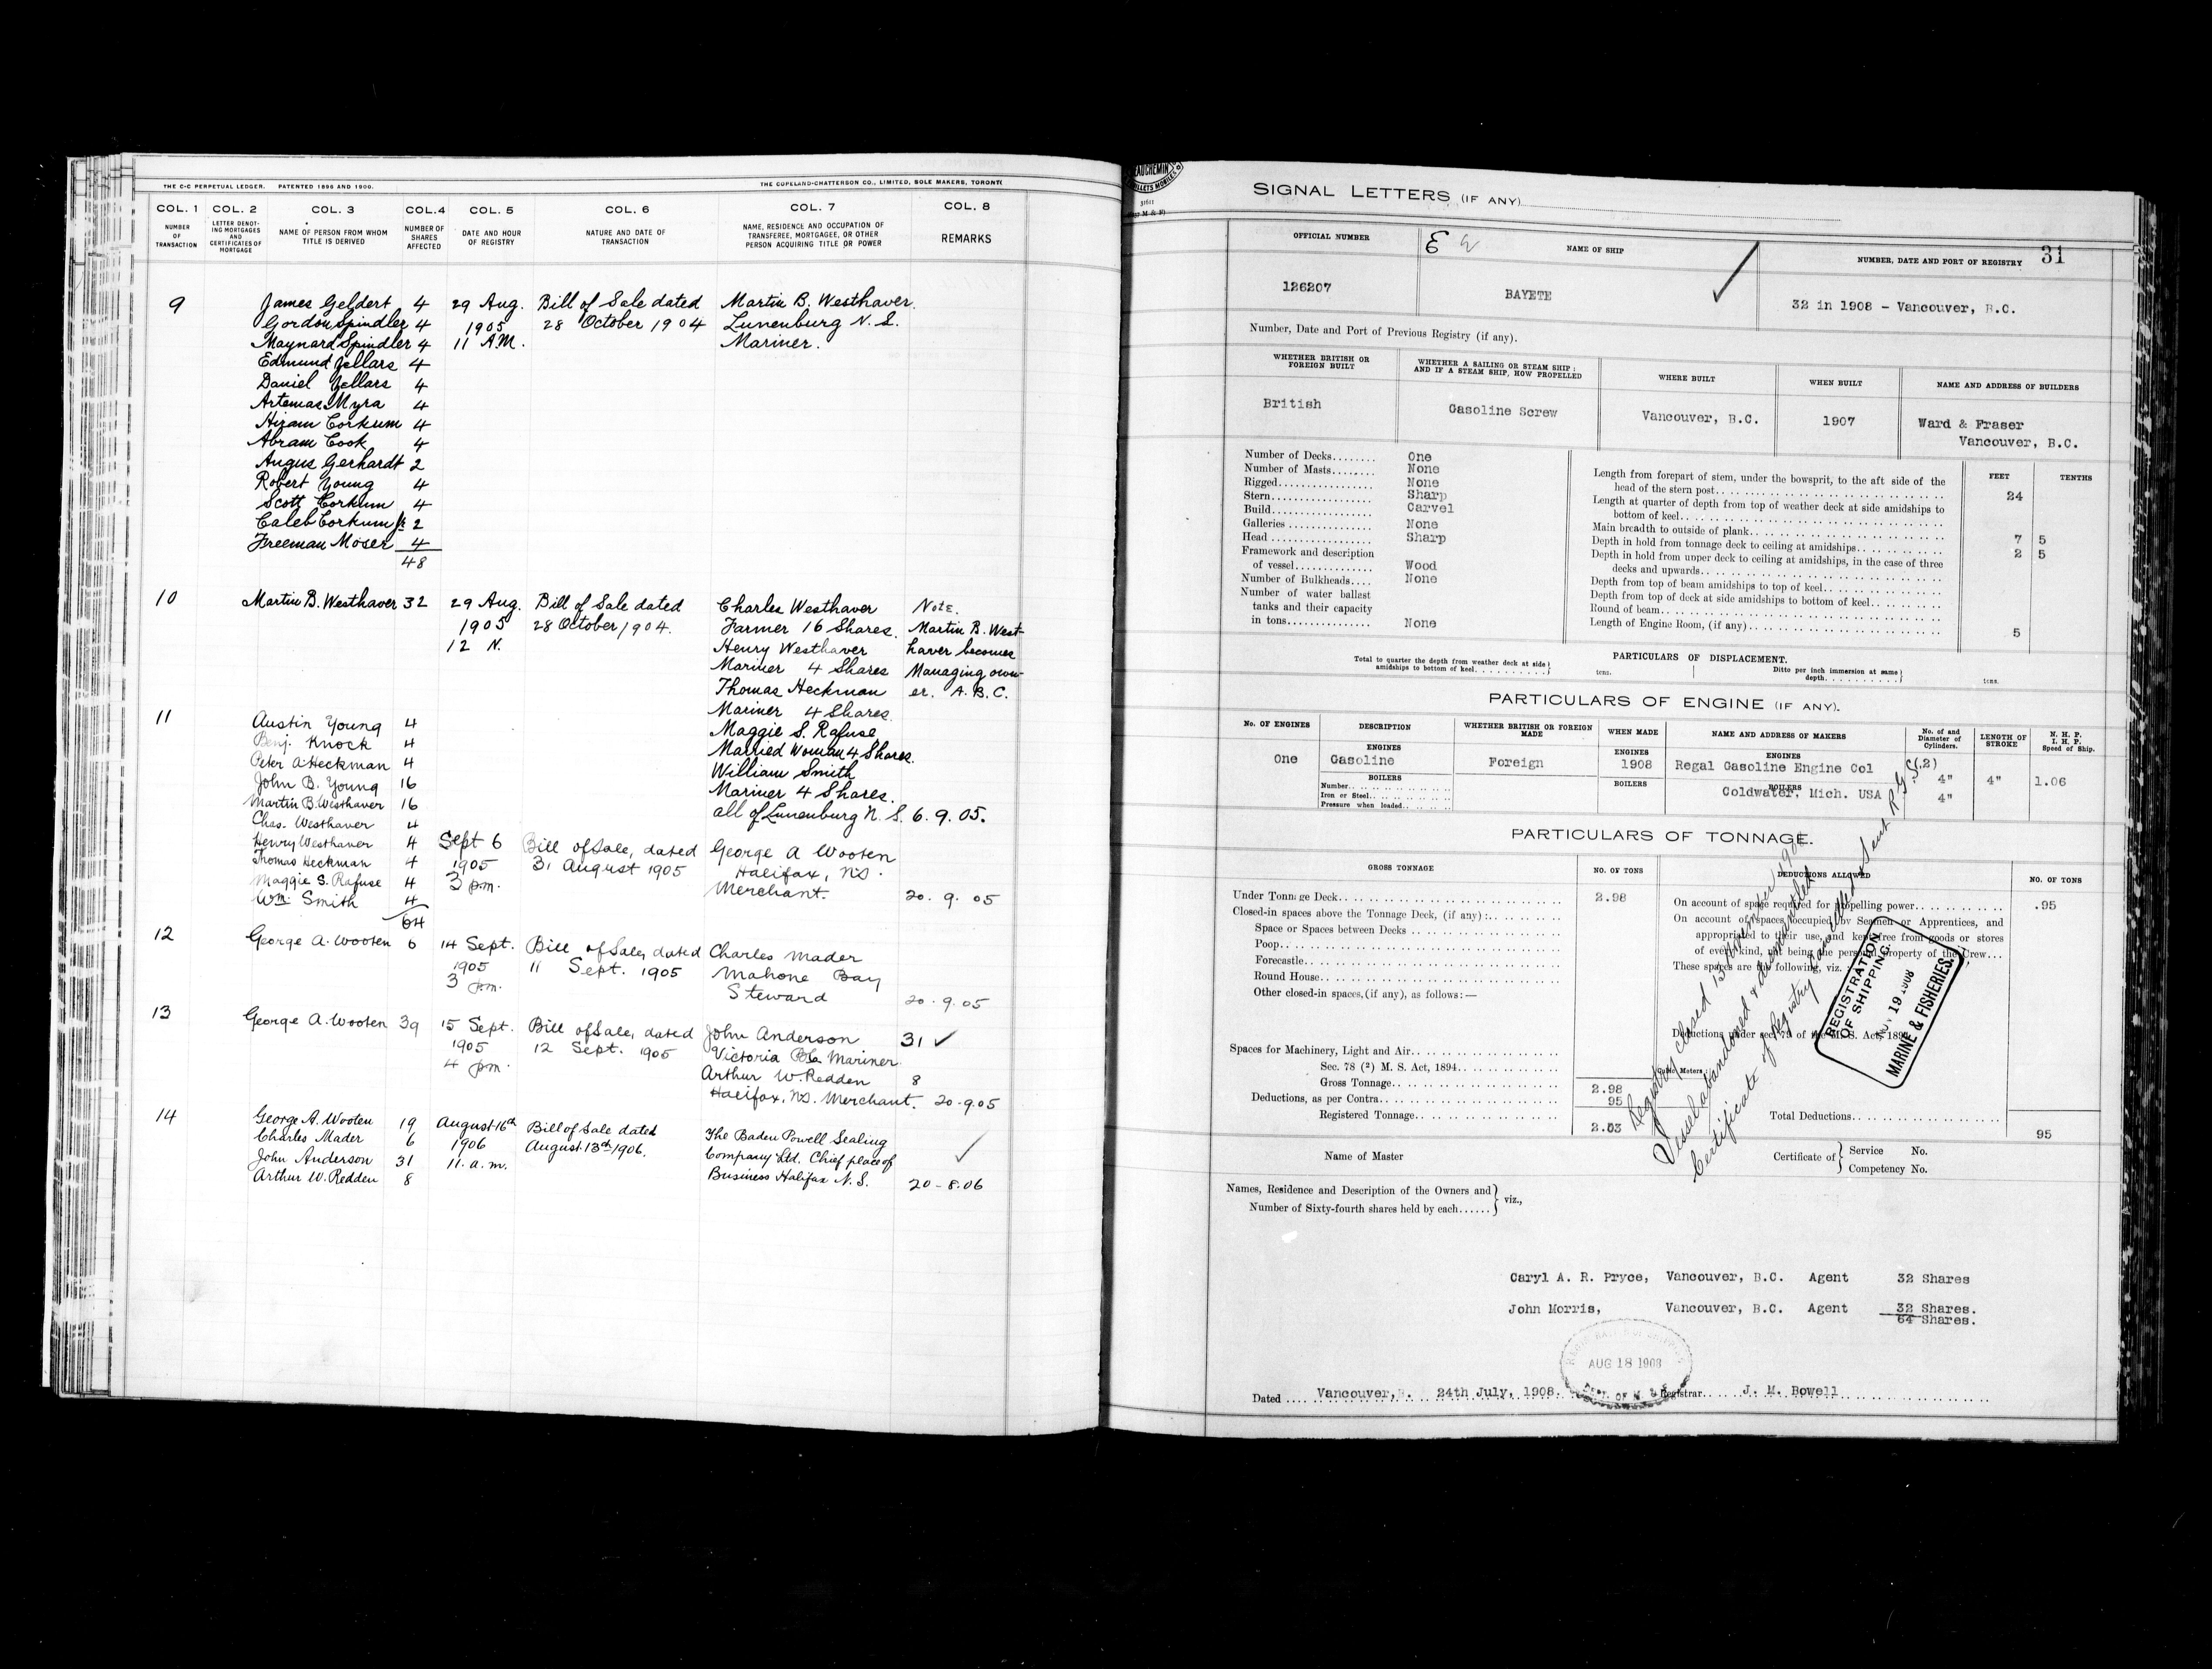 THE C-C PERPETUAL LEDGER. PATENTED 1896 AND 1900. THE COPELAND-CHATTERSON CO., LIMITED, SOLE MAKERS, TORONTO
COL. 1 COL. 2 COL. 3 COL. 4 COL. 5 COL. 6 COL. 7 COL. 8
NUMBER OF TRANSACTION
LETTER DENOTING MORTGAGES AND CERTIFICATES OF MORTGAGE
NAME OF PERSON FROM WHOM TITLE IS DERIVED
NUMBER OF SHARES AFFECTED
DATE AND HOUR OF REGISTRY
NATURE AND DATE OF TRANSACTION
NAME, RESIDENCE AND OCCUPATION OF TRANSFEREE, MORTGAGEE, OR OTHER PERSON ACQUIRING TITLE OR POWER
REMARKS
9 James Geldert 4 29 Aug. Bill of Sale dated Martin B. Westhaver
Gordon Spindler 4 1905 28 October 1904 Lunenburg N. S.
Maynard Spindler 4 11 A.M. Mariner.
Edmund Zellars 4
Daniel Zellars 4
Artemas Myra 4
Hiram Corkum 4
Abram Cook 4
Angus Gerhardt 2
Robert Young 4
Scott Corkum 4
Caleb Corkum Jr 2
Freeman Moser 4
48
10 Martin B. Westhaver 32 29 Aug. Bill of Sale dated Charles Westhaver Note.
1905 28 October 1904. Farmer 16 Shares. Martin B. West-
12 N. Henry Westhaver haver becomes
Mariner 4 Shares Managing own-
Thomas Heckman er. A. B. C.
Mariner 4 Shares.
11 Austin Young 4 Maggie S. Rafuse
Benj. Knock 4 Married Woman 4 Shares.
Peter A. Heckman 4 William Smith
John B. Young 16 Mariner 4 Shares.
Martin B. Westhaver 16 all of Lunenburg N. S. 6. 9. 05.
Chas. Westhaver 4
Henry Westhaver 4 Sept 6 Bill of Sale, dated George A Wooten
Thomas Heckman 4 1905 31 August 1905 Halifax, NS.
Maggie S. Rafuse 4 3 pm. Merchant. 20. 9. 05
Wm. Smith 4
64
12 George A. Wooten 6 14 Sept. Bill of Sale, dated Charles Mader
1905 11 Sept. 1905 Mahone Bay
3 pm. Steward 20. 9. 05
13 George A. Wooten 39 15 Sept. Bill of Sale, dated John Anderson 31 ✓
1905 12 Sept. 1905 Victoria Mariner
4 pm. Arthur W. Redden 8
Halifax, NS. Merchant. 20.9.05
14 George A. Wooten 19 August 16th Bill of Sale dated The Baden Powell Sealing
Charles Mader 6 1906 August 13th 1906. Company Ltd. Chief place of
John Anderson 31 11. a.m. Business Halifax N. S.
Arthur W. Redden 8 20-8.06
SIGNAL LETTERS (IF ANY)
31
OFFICIAL NUMBER NAME OF SHIP NUMBER, DATE AND PORT OF REGISTRY
126207 BAYETE 32 in 1908 - Vancouver, B.C.
Number, Date and Port of Previous Registry (if any).
WHETHER BRITISH OR FOREIGN BUILT
WHETHER A SAILING OR STEAM SHIP: AND IF A STEAM SHIP, HOW PROPELLED
WHERE BUILT
WHEN BUILT
NAME AND ADDRESS OF BUILDERS
British Gasoline Screw Vancouver, B.C. 1907 Ward & Fraser
Vancouver, B.C.
Number of Decks........ One
Number of Masts........ None
Rigged.................. None
Stern................... Sharp
Build................... Carvel
Galleries............... None
Head.................... Sharp
Framework and description
of vessel.............. Wood
Number of Bulkheads.... None
Number of water ballast
tanks and their capacity
in tons............... None
FEET TENTHS
Length from forepart of stem, under the bowsprit, to the aft side of the
head of the stern post.. 24
Length at quarter of depth from top of weather deck at side amidships to
bottom of keel..
Main breadth to outside of plank.. 7 5
Depth in hold from tonnage deck to ceiling at amidships.. 2 5
Depth in hold from upper deck to ceiling at amidships, in the case of three
decks and upwards..
Depth from top of beam amidships to top of keel..
Depth from top of deck at side amidships to bottom of keel..
Round of beam..
Length of Engine Room, (if any).. 5
PARTICULARS OF DISPLACEMENT.
Total to quarter the depth from weather deck at side amidships to bottom of keel.......... tons.
Ditto per inch immersion at same depth.......... tons.
PARTICULARS OF ENGINE (IF ANY).
No. OF ENGINES DESCRIPTION WHETHER BRITISH OR FOREIGN MADE WHEN MADE NAME AND ADDRESS OF MAKERS No. of and Diameter of Cylinders. LENGTH OF STROKE N. H. P. I. H. P. Speed of Ship.
ENGINES ENGINES ENGINES
One Gasoline Foreign 1908 Regal Gasoline Engine Col (2)
4" 4" 1.06
BOILERS BOILERS BOILERS
Coldwater, Mich. USA 4"
Number..
Iron or Steel..
Pressure when loaded..
PARTICULARS OF TONNAGE.
GROSS TONNAGE NO. OF TONS DEDUCTIONS ALLOWED NO. OF TONS
Under Tonnage Deck.. 2.98
Closed-in spaces above the Tonnage Deck, (if any):..
Space or Spaces between Decks ..
Poop..
Forecastle..
Round House..
Other closed-in spaces, (if any), as follows:—
Spaces for Machinery, Light and Air..
Sec. 78 (2) M. S. Act, 1894..
Gross Tonnage.. 2.98
Deductions, as per Contra.. 95
Registered Tonnage.. 2.03
On account of space required for propelling power.. .95
On account of spaces occupied by Seamen or Apprentices, and
appropriated to their use, and kept free from goods or stores
of every kind, not being the personal property of the Crew...
These spaces are the following, viz.
Deductions under sec. 79 of the M. S. Act, 1894
Cubic Meters.
Total Deductions.. 95
Registry closed
Vessel abandoned & dismantled
Certificate of Registry cancelled & sent R. G. S.
REGISTRATION
OF SHIPPING.
19 1908
MARINE & FISHERIES.
Name of Master
Certificate of Service No.
Competency No.
Names, Residence and Description of the Owners and
Number of Sixty-fourth shares held by each...... viz.,
Caryl A. R. Pryce, Vancouver, B.C. Agent 32 Shares
John Morris, Vancouver, B.C. Agent 32 Shares.
64 Shares.
AUG 18 1908
Dated .... Vancouver, B. 24th July, 1908. Registrar.. J. M. Bowell